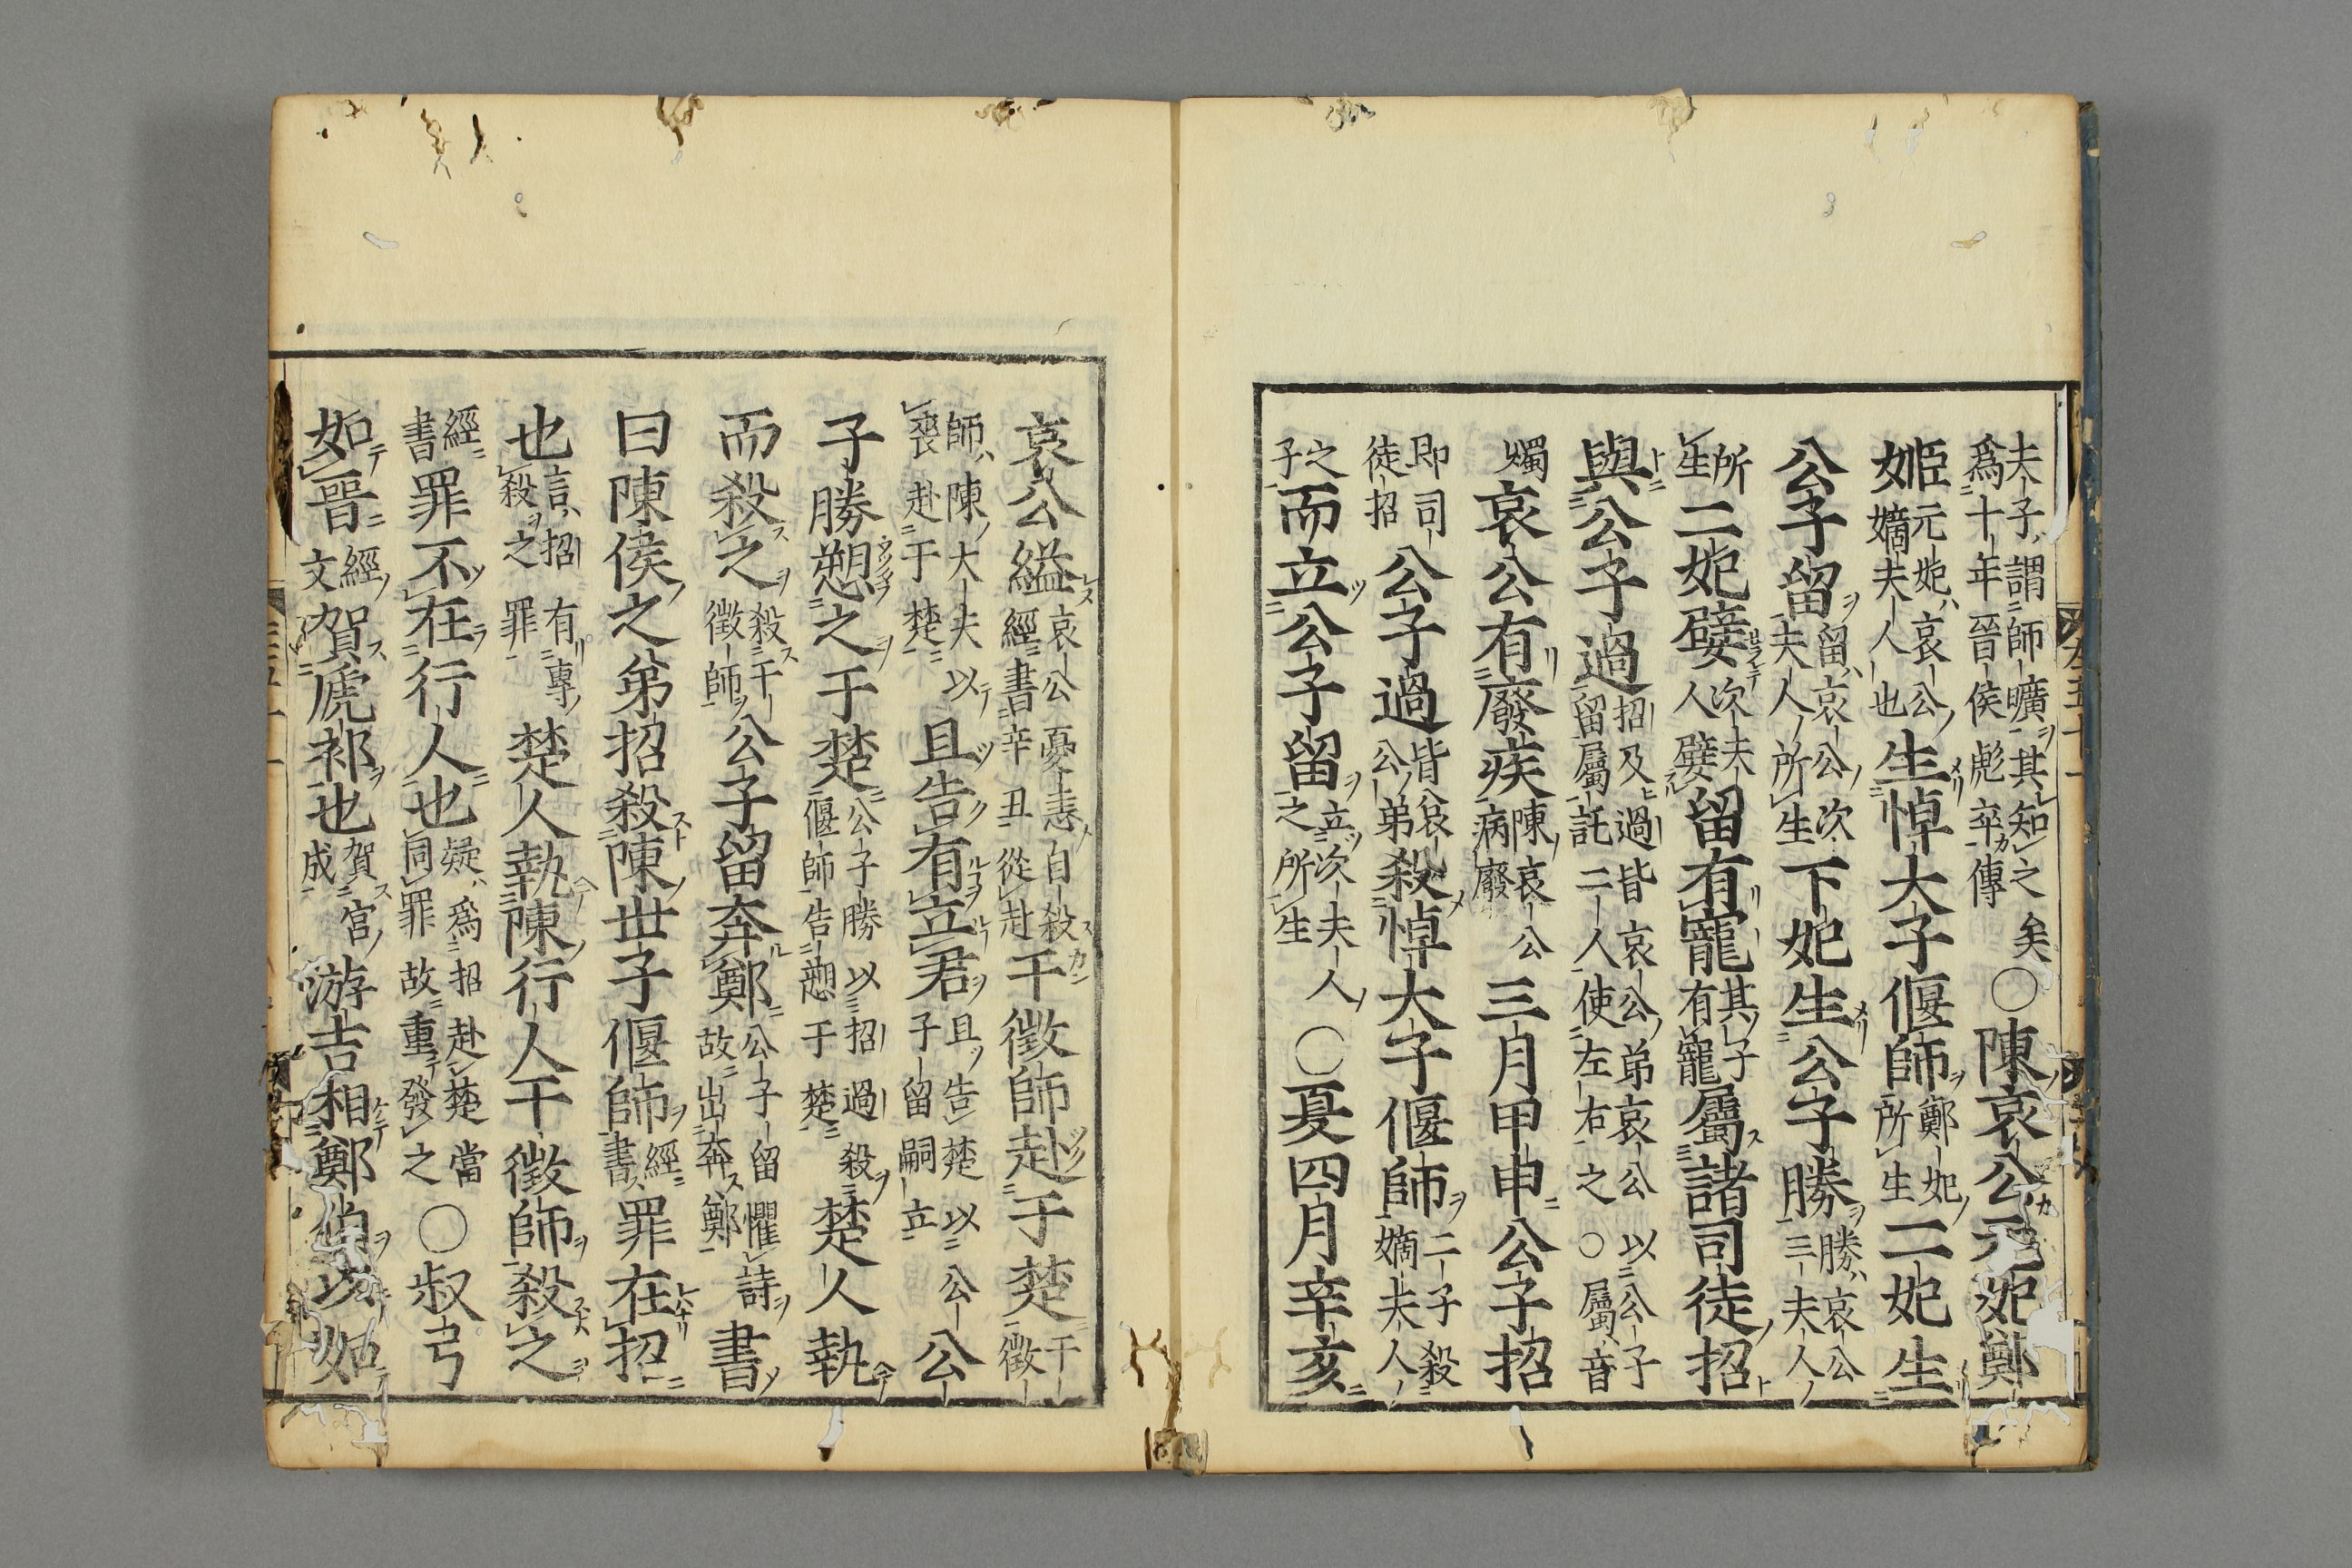 夫子謂師曠其知之矣
爲十年晉侯彪卒傳
○陳哀公元妃鄭
姬元妃哀公嫡夫人也生悼大子偃師鄭妃所生二妃生
公子留留哀公次夫人所生下妃生公子勝勝哀公三夫人
所生二妃嬖次夫人嬖留有寵其子有寵屬諸司徒招
與公子過招及過皆哀公弟哀公以公子留屬託二人使左右之○屬音
燭哀公有廢疾陳哀公病廢三月甲申公子招
即司徒招公子過皆哀公弟殺悼大子偃師二子殺嫡夫人
之子而立公子留立次夫人之所生○夏四月辛亥
哀公縊哀公憂恚自殺經書辛丑從赴干徵師赴于楚干徵
師陳大夫以喪赴于楚且告有立君且告楚以公子留嗣立公
子勝愬之于楚公子勝以招過殺偃師告愬于楚楚人執
而殺之殺干徵師公子留奔鄭公子留懼詩故出奔鄭書
曰陳侯之弟招殺陳世子偃師經書罪在招
也言招有專殺之罪楚人執陳行人干徵師殺之
經書罪不在行人也疑爲招赴楚當同罪故重發之○叔弓
如晉經文賀虒祁也賀宮成游吉相鄭伯以如